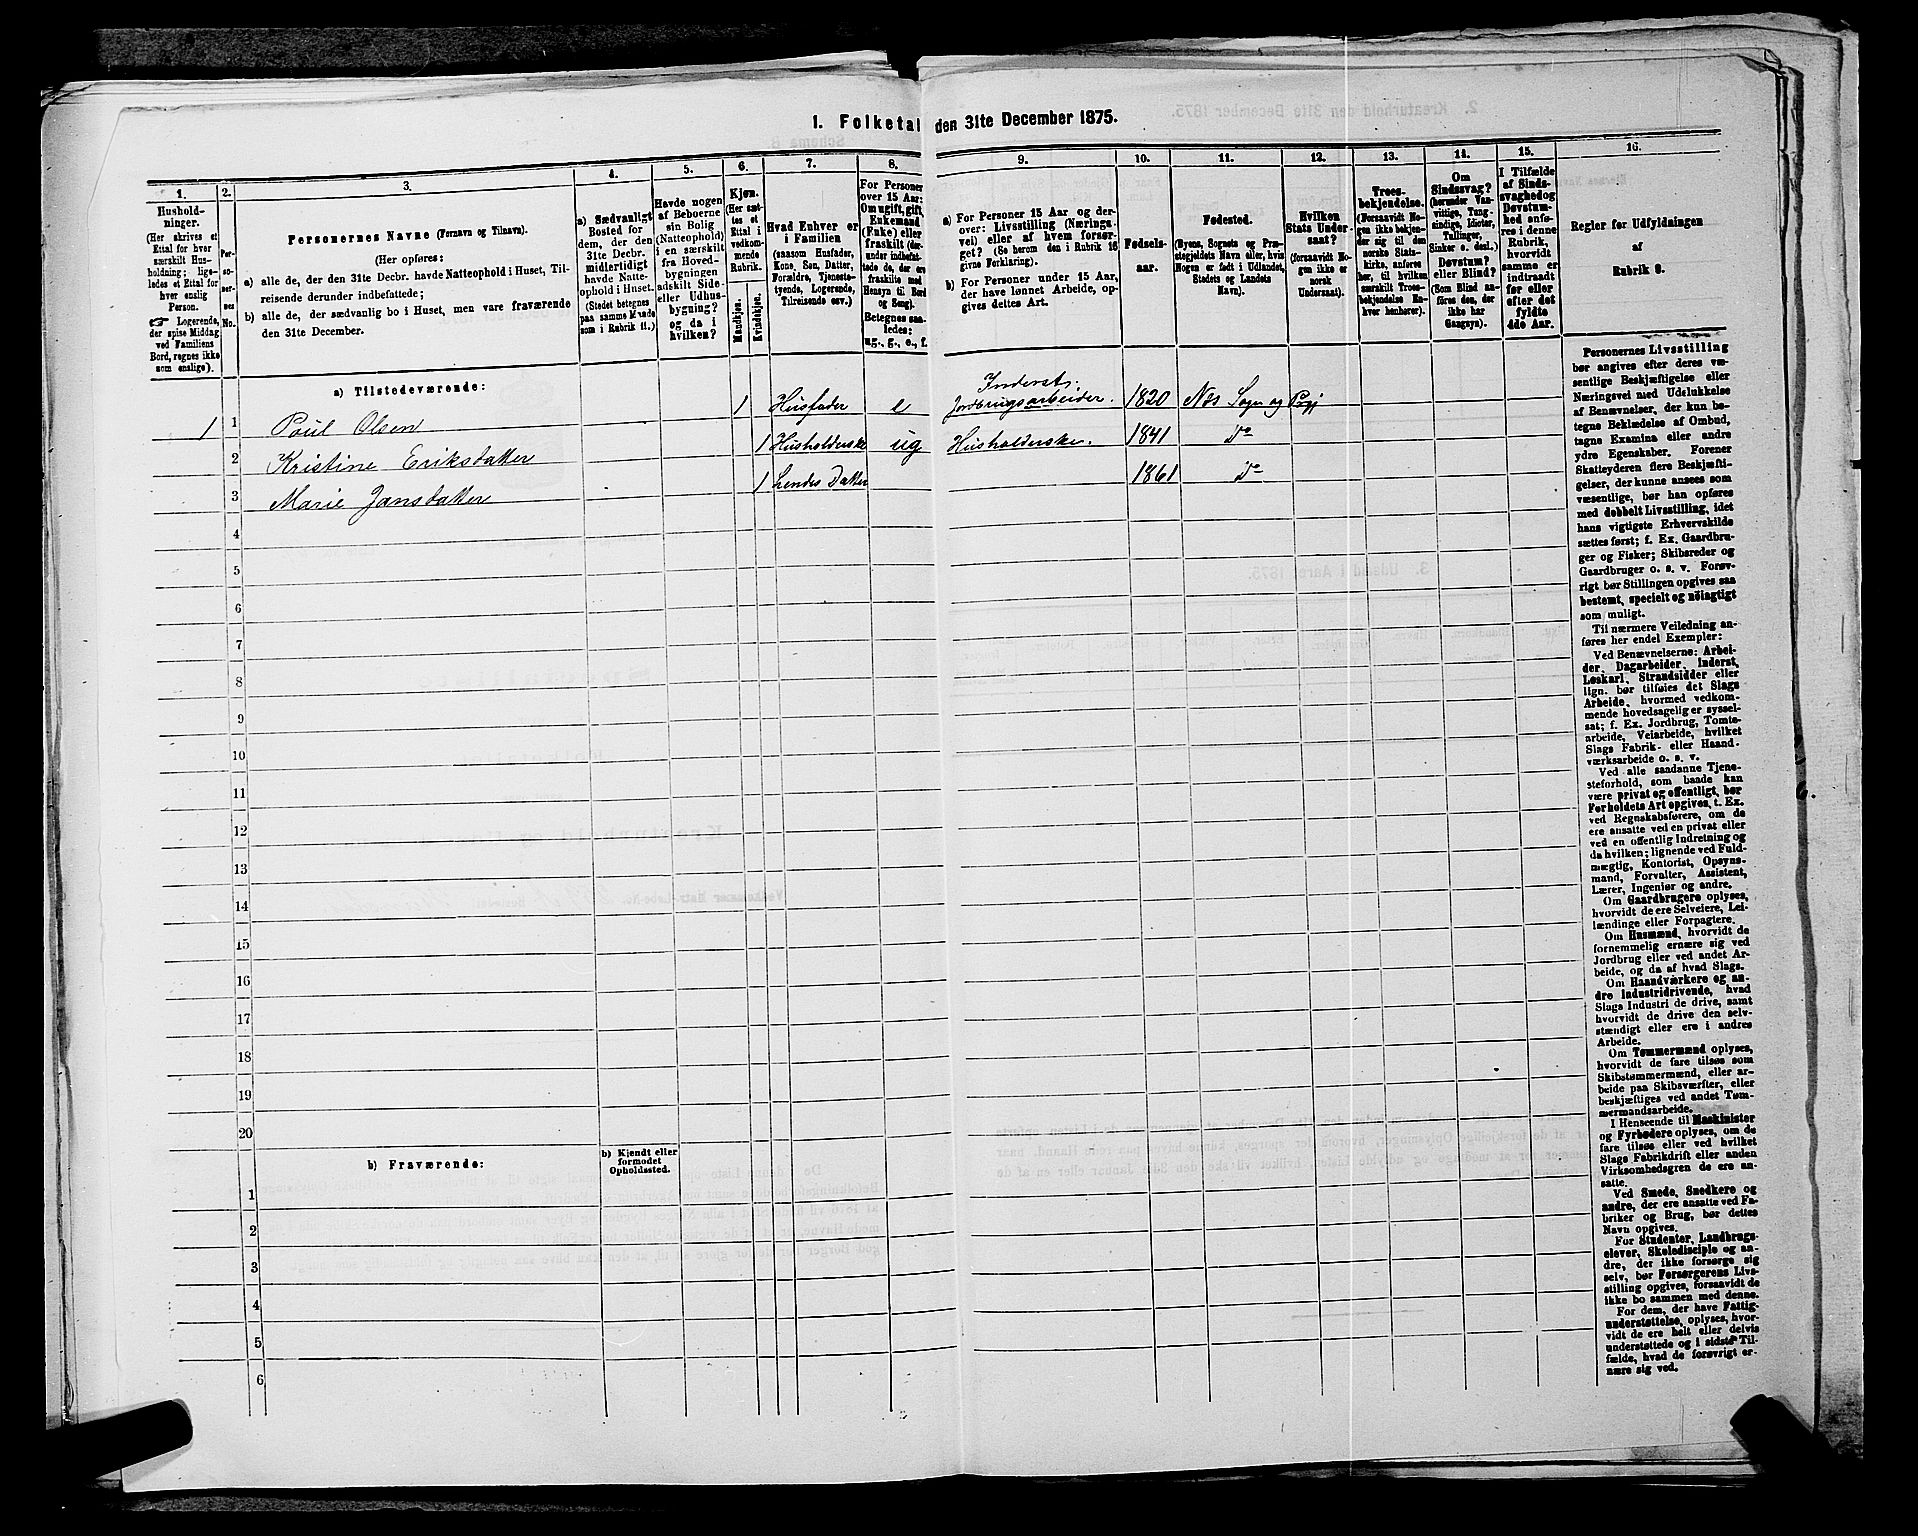 1. Folketal den 31te December 1875.
1.
Hushold-
ninger.
(Her skrives et
Ettal for hver
særskilt Hus-
holdning; lige-
ledes et Ettal for
hver enslig
Person.
☞ Logerende,
der spise Middag
ved Familiens
Bord, regnes ikke
som enslige).
2.
Per-
so-
ner-
nes
No.
3.
Personernes Navne (Fornavn og Tilnavn).
(Her opføres:
a) alle de, der den 31te Decbr. havde Natteophold i Huset, Til-
reisende derunder indbefattede;
b) alle de, der sædvanlig bo i Huset, men vare fraværende
den 31te December.
4.
a) Sædvanligt
Bosted for
dem, der den
31te Decbr.
midlertidigt
havde Natte-
ophold i Huset.
(Stedet betegnes
paa samme Maade
som i Rubrik 11.)
5.
Havde nogen
af Beboerne
sin Bolig
(Natteophold)
i en særskilt
fra Hoved-
bygningen
adskilt Side-
eller Udhus-
bygning?
og da i
hvilken?
6.
Kjøn.
(Her sæt-
tes et
Ettal i
vedkom-
mende
Rubrik.
Mandkjøn.
Kvindekjøn.
7.
Hvad Enhver er
i Familien
(saasom Husfader,
Kone, Søn, Datter,
Forældre, Tjeneste-
tyende, Logerende,
Tilreisende osv.)
8.
For Personer
over 15 Aar:
Om ugift, gift,
Enkemand
(Enke) eller
fraskilt (der-
under indbefat-
tede de, der ere
fraskilte med
Hensyn til Bord
og Seng).
Betegnes saa-
ledes:
ug., g., e., f.
9.
a) For Personer 15 Aar og der-
over: Livsstilling (Nærings-
vei) eller af hvem forsør-
get? (Se herom den i Rubrik 16
givne Forklaring).
b) For Personer under 15 Aar,
der have lønnet Arbeide, op-
gives dettes Art.
10.
Fødsels-
aar.
11.
Fødested.
(Byens, Sognets og Præ-
stegjeldets Navn eller, hvis
Nogen er født i Udlandet,
Stedets og Landets
Navn).
12.
Hvilken
Stats Under-
saat?
(forsaavidt No-
gen ikke er
norsk
Undersaat).
13.
Troes-
bekjendelse.
(Forsaavidt No-
gen ikke bekjen-
der sig til den
norske Stats-
kirke, anføres
her, til hvilken
særskilt Troes-
bekjendelse En-
hver henhører).
14.
Om
Sindssvag?
(herunder Van-
vittige, Tung-
sindige, Idioter,
Tullinger,
Sinker o. desl.)
Døvstum?
eller Blind?
(Som Blind an-
føres den, der
ikke har
Gangsyn).
15.
I Tilfælde
af Sinds-
svaghed og
Døvstum-
hed anfø-
res i denne
Rubrik,
hvorvidt
samme er
indtraadt
før eller
efter det
fyldte
4de Aar.
16.
Regler for Udfyldningen
af
Rubrik 9.
a) Tilstedeværende:
1 1 Poul Olsen 1 Husfader e Inderst.
Jordbrugsarbeider. 1820 Næs Sogn og Pgj
2 Kristine Eriksdatter 1 Husholderske ug Husholderske. 1841 Do
3 Marie Jansdatter 1 hendes Datter 1861 Do
4
5
6
7
8
9
10
11
12
13
14
15
16
17
18
19
20
b) Fraværende:
b) Kjendt eller
formodet
Opholdssted.
1
2
3
4
5
6
Personernes Livsstilling
bør angives efter deres væ-
sentlige Beskjæftigelse eller
Næringsvei med Udelukkelse
af Benævnelser, der kun be-
tegne Beklædelse af Ombud,
tagne Examina eller andre
ydre Egenskaber. Forener
Skatteyderen flere Beskjæfti-
gelser, der kunne ansees som
væsentlige, bør han opføres
med dobbelt Livsstilling, idet
hans vigtigste Erhvervskilde
sættes først; f. Ex. Gaardbru-
ger og Fisker; Skibsreder og
Gaardbruger o. s. v. Forøv-
rigt bør Stillingen opgives saa
bestemt, specielt og nöiagtigt
som muligt.
Til nærmere Veiledning an-
føres her endel Exempler:
Ved Benævnelserne: Arbei-
der, Dagarbeider, Inderst,
Løskarl, Strandsidder eller
lign. bør tilføies det Slags
Arbeide, hvormed vedkom-
mende hovedsagelig er syssel-
sat; f. Ex. Jordbrug, Tomte-
arbeide, Veiarbeide, hvilket
Slags Fabrik- eller Haand-
værksarbeide o. s. v.
Ved alle saadanne Tjene-
steforhold, som baade kan
være privat og offentligt, bør
Forholdets Art opgives, t. Ex.
ved Regnskabsførere, om de
ere ansatte ved en privat eller
ved en offentlig Indretning og
da hvilken; lignende ved Fuld-
mægtig, Kontorist, Opsyns-
mand, Forvalter, Assistent,
Lærer, Ingeniør og andre.
Om Gaardbrugere oplyses,
hvorvidt de ere Selveiere, Lei-
lændinge eller Forpagtere.
Om Husmænd, hvorvidt de
fornemmelig ernære sig ved
Jordbrug eller ved andet Ar-
beide, og da af hvad Slags.
Om Haandværkere og an-
dre Industridrivende, hvad
Slags Industri de drive, samt
hvorvidt de drive den selv-
stændigt eller ere i andres
Arbeide.
Om Tømmermænd oplyses,
hvorvidt de fare tilsøs som
Skibstømmermænd, eller ar-
beide paa Skibsværfter, eller
beskjæftiges ved andet Tøm-
mermandsarbeide.
I Henseende til Maskinister
og Fyrbødere oplyses, om de
fare tilsøs eller ved hvilket
Slags Fabrikdrift eller anden
Virksomhedsgren de ere an-
satte.
Ved Smede, Snedkere og
andre, der ere ansatte ved Fa-
briker og Brug, bør dettes
Navn opgives.
For Studenter, Landbrugs-
elever, Skoledisciple og an-
dre, der ikke forsørge sig
selv, bør Forsørgerens Livs-
stilling opgives, forsaavidt de
ikke bo sammen med denne.
For dem, der have Fattig-
understøttelse, oplyses, hvor-
vidt de ere helt eller delvis
understøttede og i sidste Til-
fælde, hvad de forøvrigt er-
nære sig ved.